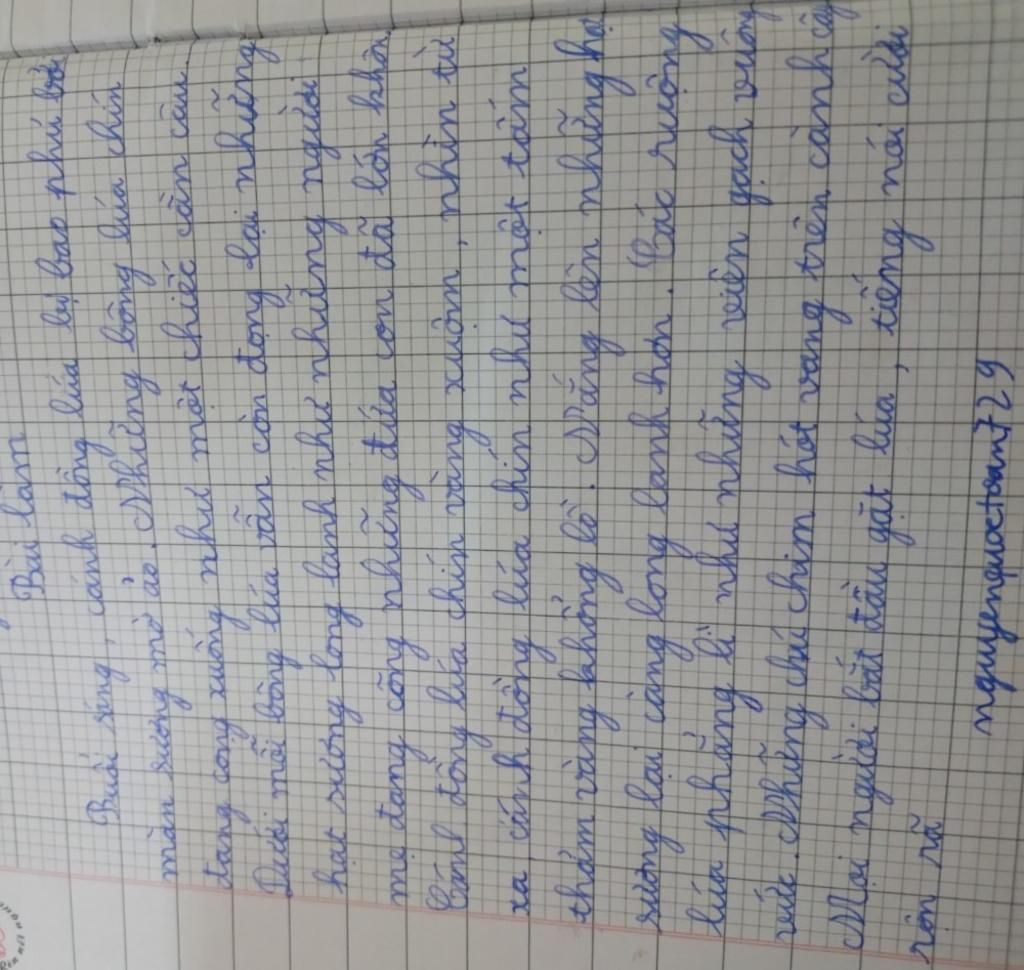 Bài làm
Buổi sáng, cánh đồng lúa bị bao phủ bởi
màn sương mờ ảo. Những bông lúa chín
đang cong xuống như một chiếc cần câu.
Dưới mỗi bông lúa vẫn còn đọng lại những
hạt sương long lanh như những người
mẹ đang cõng những đứa con đã lớn khôn.
Cánh đồng lúa chín vàng xuộm, nhìn từ
xa cánh đồng lúa chín như một tấm
thảm vàng khổng lồ. Nắng lên những hạt
sương lại càng long lanh hơn. Các ruộng
lúa phẳng lì như những viên gạch vuông
vức. Những chú chim hót vang trên cành cây
Mọi người bắt đầu gặt lúa, tiếng nói cười
rôn rã
nguyenquoctoan729